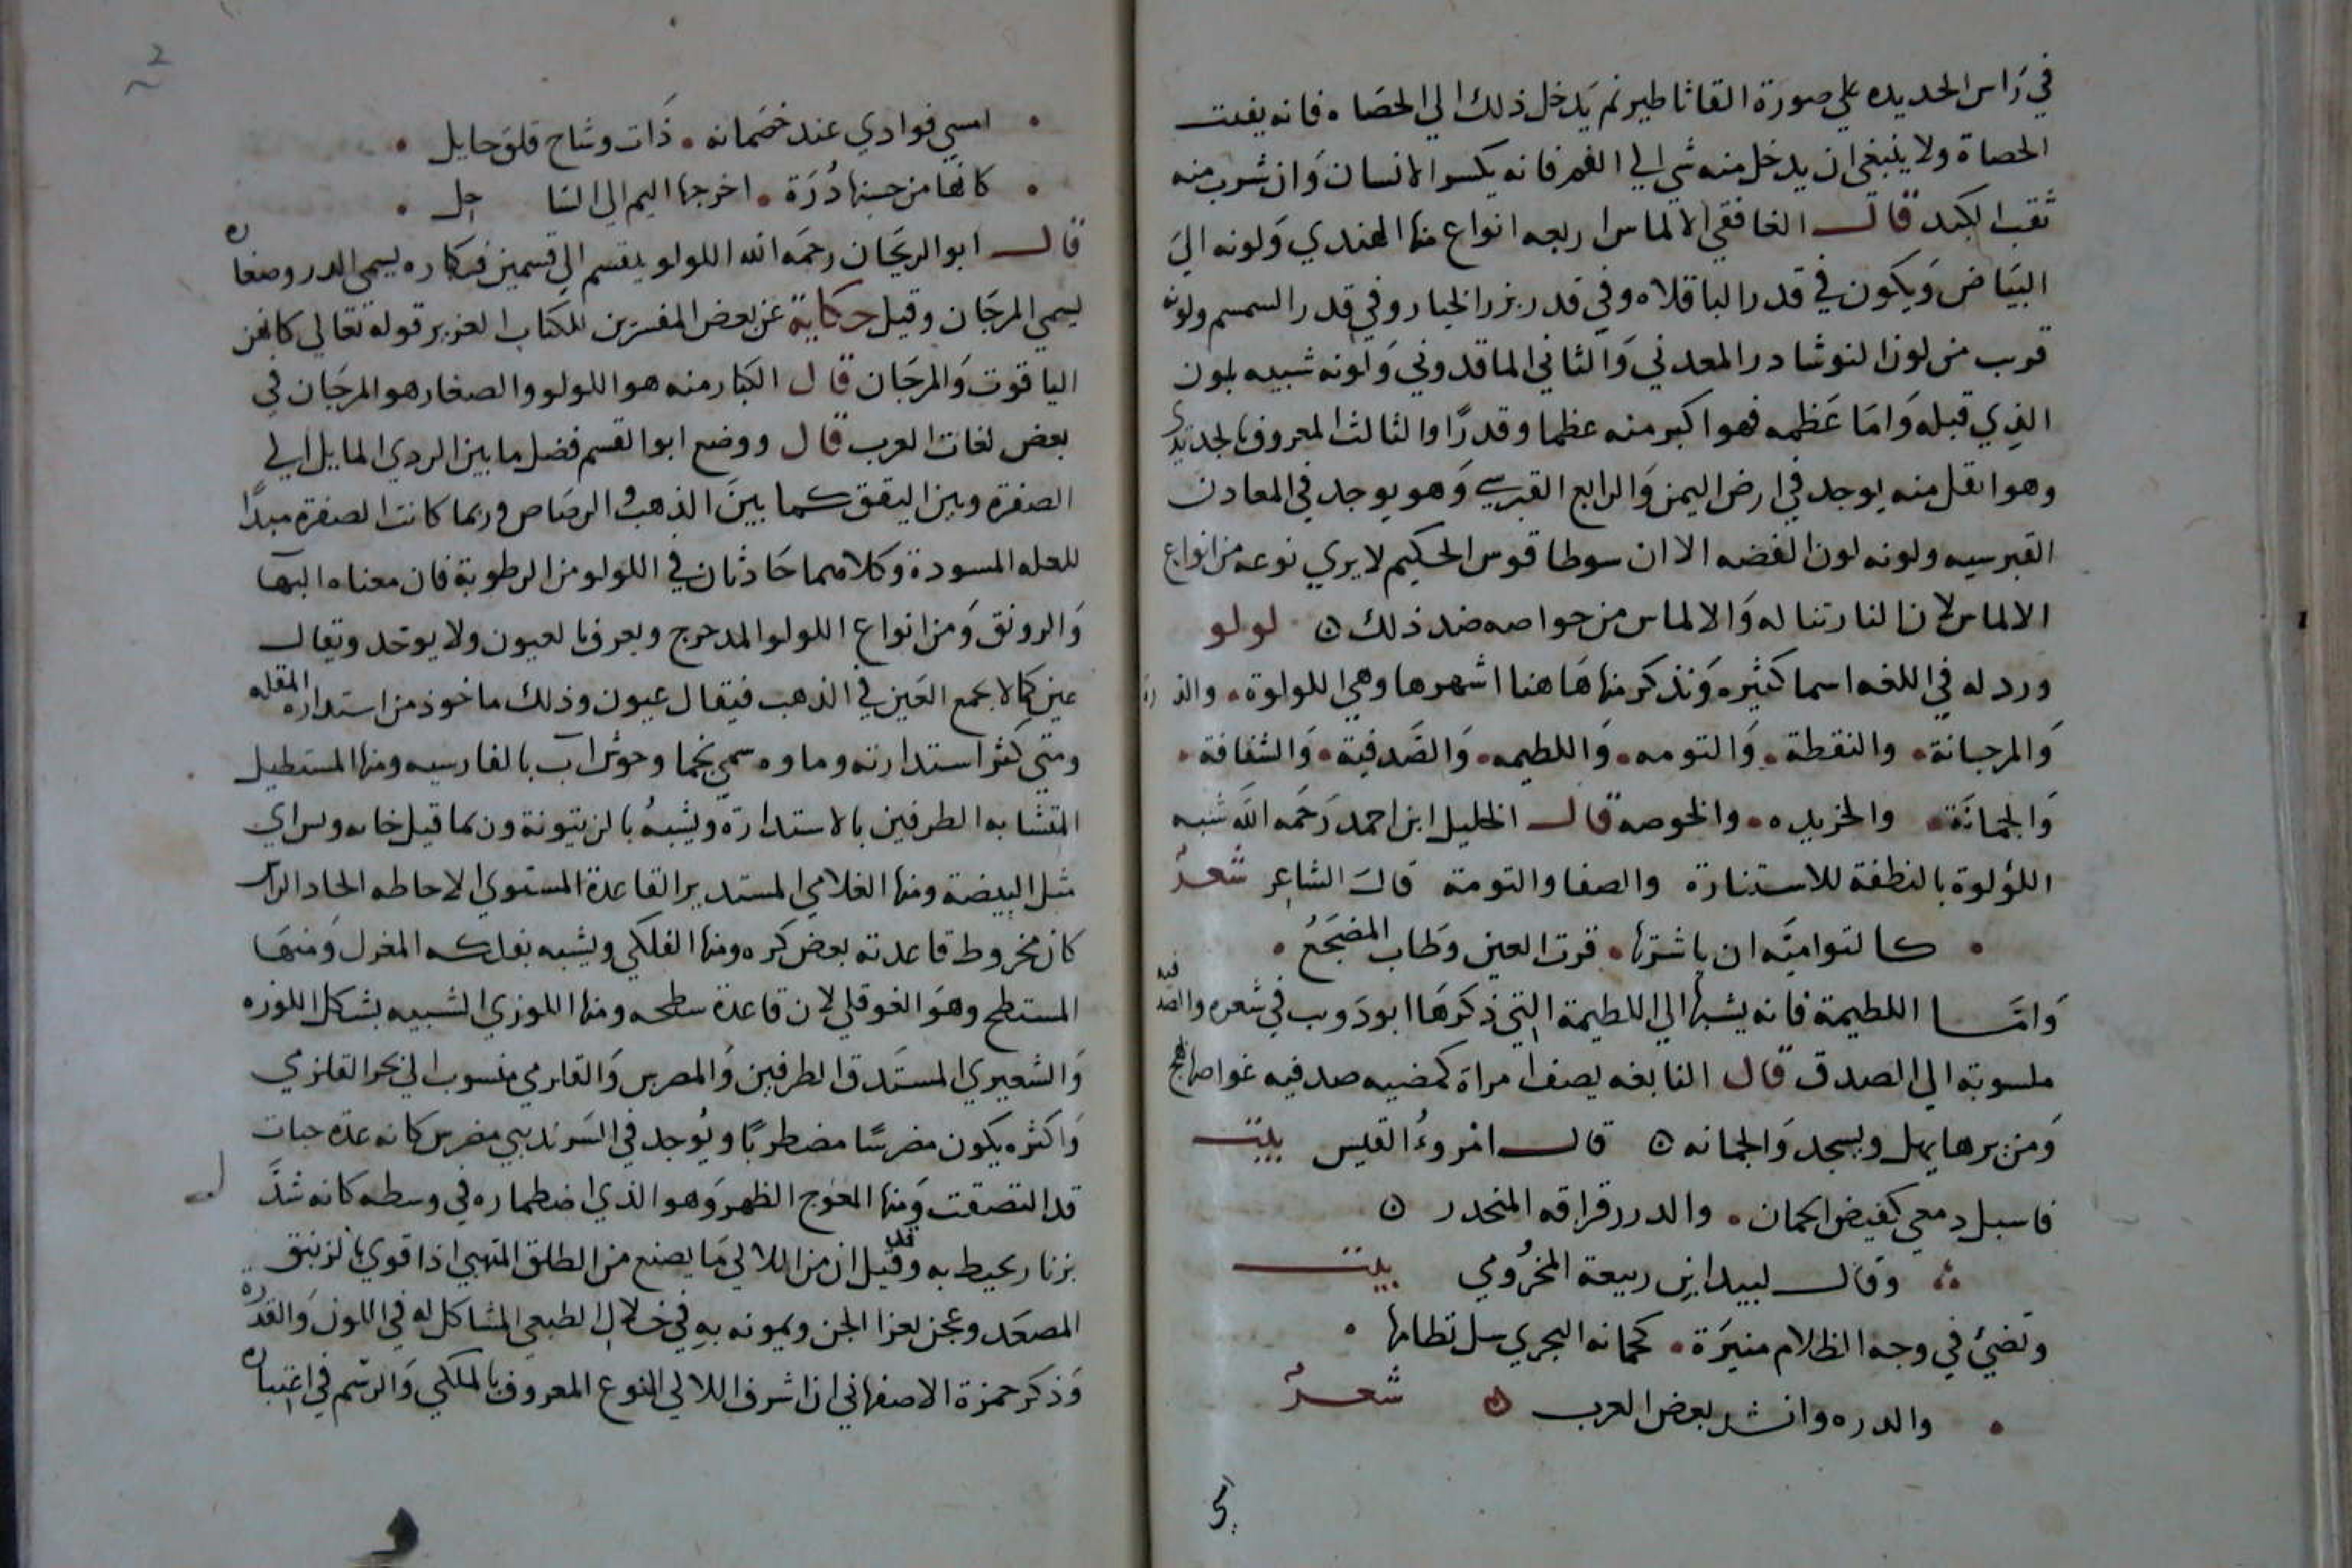 في راس الحديده علي صورة القاثاطير ثم يدخل ذلك الي الحصاه فانه يفتت
الحصاة ولا ينبغي ان يدخل منه شي الي الفم فانه يكسر الاسنان وان شرب منه
ثقب الكبد قال الغافقي الالماس اربعه انواع منها الهندي ولونه الي
البياض ويكون في قدر الباقلاه وفي قدر بزر الخيار وفي قدر السمسم ولونه
قرب من لون النوشادر المعدني والثاني الماقدوني ولونه شبيه بلون
الذي قبله واما عظمه فهو اكبر منه عظما وقدرا والثالث المعروف بالحديدي
وهو اثقل منه يوجد في ارض اليمن والرابع القبرسي وهو يوجد في المعادن
القبرسيه ولونه لون الفضه الا ان سوطاقوس الحكيم لا يري نوعه من انواع
الالماس لان النار تناله والالماس من خواصه ضد ذلك ه لولو
ورد له في اللغه اسما كثيره ونذكر منها هاهنا اشهرها وهي اللولوة . والدره
والمرجانة . والنقطة . والتومه . واللطيمه . والصدفية . والشفافة .
والجمانة . والخريده . والخوصه قال الخليل ابن احمد رحمه الله شبه
اللؤلوة بالنطفة للاستنارة والصفا والتومة قال الشاعر شعر
. كالتواميه ان باشرتها . قرت العين وطاب المضجع .
واما اللطيمة فانه يشبها الي اللطيمة التي ذكرها ابو دويب في شعره والصدفيه
منسوبة الي الصدف قال النابغه يصف امراة كمضيه صدفيه غواصها بهج
ومن يرها يهل ويسجد والجمانه ه قال امروء القيس بيت
فاسبل دمعي كفيض الجمان . والدرر قراقه المنحدر ه
وقال لبيد ابن ربيعة المخزومي بيت
وتضيئ في وجه الظلام منيرة . كجمانه البحري سل نظامها .
. والدره وانشد بعض العرب ه شعر
امسي فوادي عند خصمانه . ذات وشاح قلق جايل .
. كانها من حسنها درة . اخرجها اليم الي السا جل .
قال ابو الريحان رحمه الله اللولو ينقسم الي قسمين فكباره يسمي الدر وصغاره
يسمي المرجان وقيل حكاية عن بعض المفسرين للكتاب العزيز قوله تعالي كانهن
الياقوت والمرجان قال الكبار منه هو اللولو والصغار هو المرجان في
بعض لغات العرب قال ووضع ابو القسم فضل ما بين الردي المايل الي
الصفرة وبين اليقق كما بين الذهب والرصاص وربما كانت الصفرة مبدا
للعله المسودة وكلاهما حادثان في اللولو من الرطوبة فان معناه البها
والرونق ومن انواع اللولو المدحرج ويعرف بالعيون ولا يوحد ويقال
عين كما لا يجمع العين في الذهب فيقال عيون وذلك ماخوذ من استدارة المقله
ومتي كثر استدارته وماوه سمي نجما وخوش اب بالفارسيه ومنها المستطيل
المتشابه الطرفين بالاستدارة ويشبه بالزيتونة وربما قيل خايه وس اي
مثل البيضة ومنها الغلامي المستدير القاعدة المستوي الاحاطه الحاد الراس
كانه مخروط قاعدته بعض كره ومنها الفلكي ويشبه بفلكه المغزل ومنها
المستطح وهو الفوقلي لان قاعدة سطحه ومنها اللوزي الشبيه بشكل اللوزه
والشعيري المستدق الطرفين والمصرس والقلزمي منسوب الي بحر القلزمي
واكثره يكون مضرسا مضطربا ويوجد في السرنديبي مضرس كانه عدة حبات
قد التصقت ومنها المعوج الظهر وهو الذي اضطماره في وسطه كانه شد
بزنار يحيط به وقد قيل ان من اللالي ما يصنع من الطلق المتهبي اذا قوي بالزنبق
المصعد وعجن بعزا الجبن ويموته به في خلال الطبعي المشاكل له في اللون والقدره
وذكر حمزة الاصفهاني ان اشرف اللالي النوع المعروف بالملكي والرسم في اعتباره